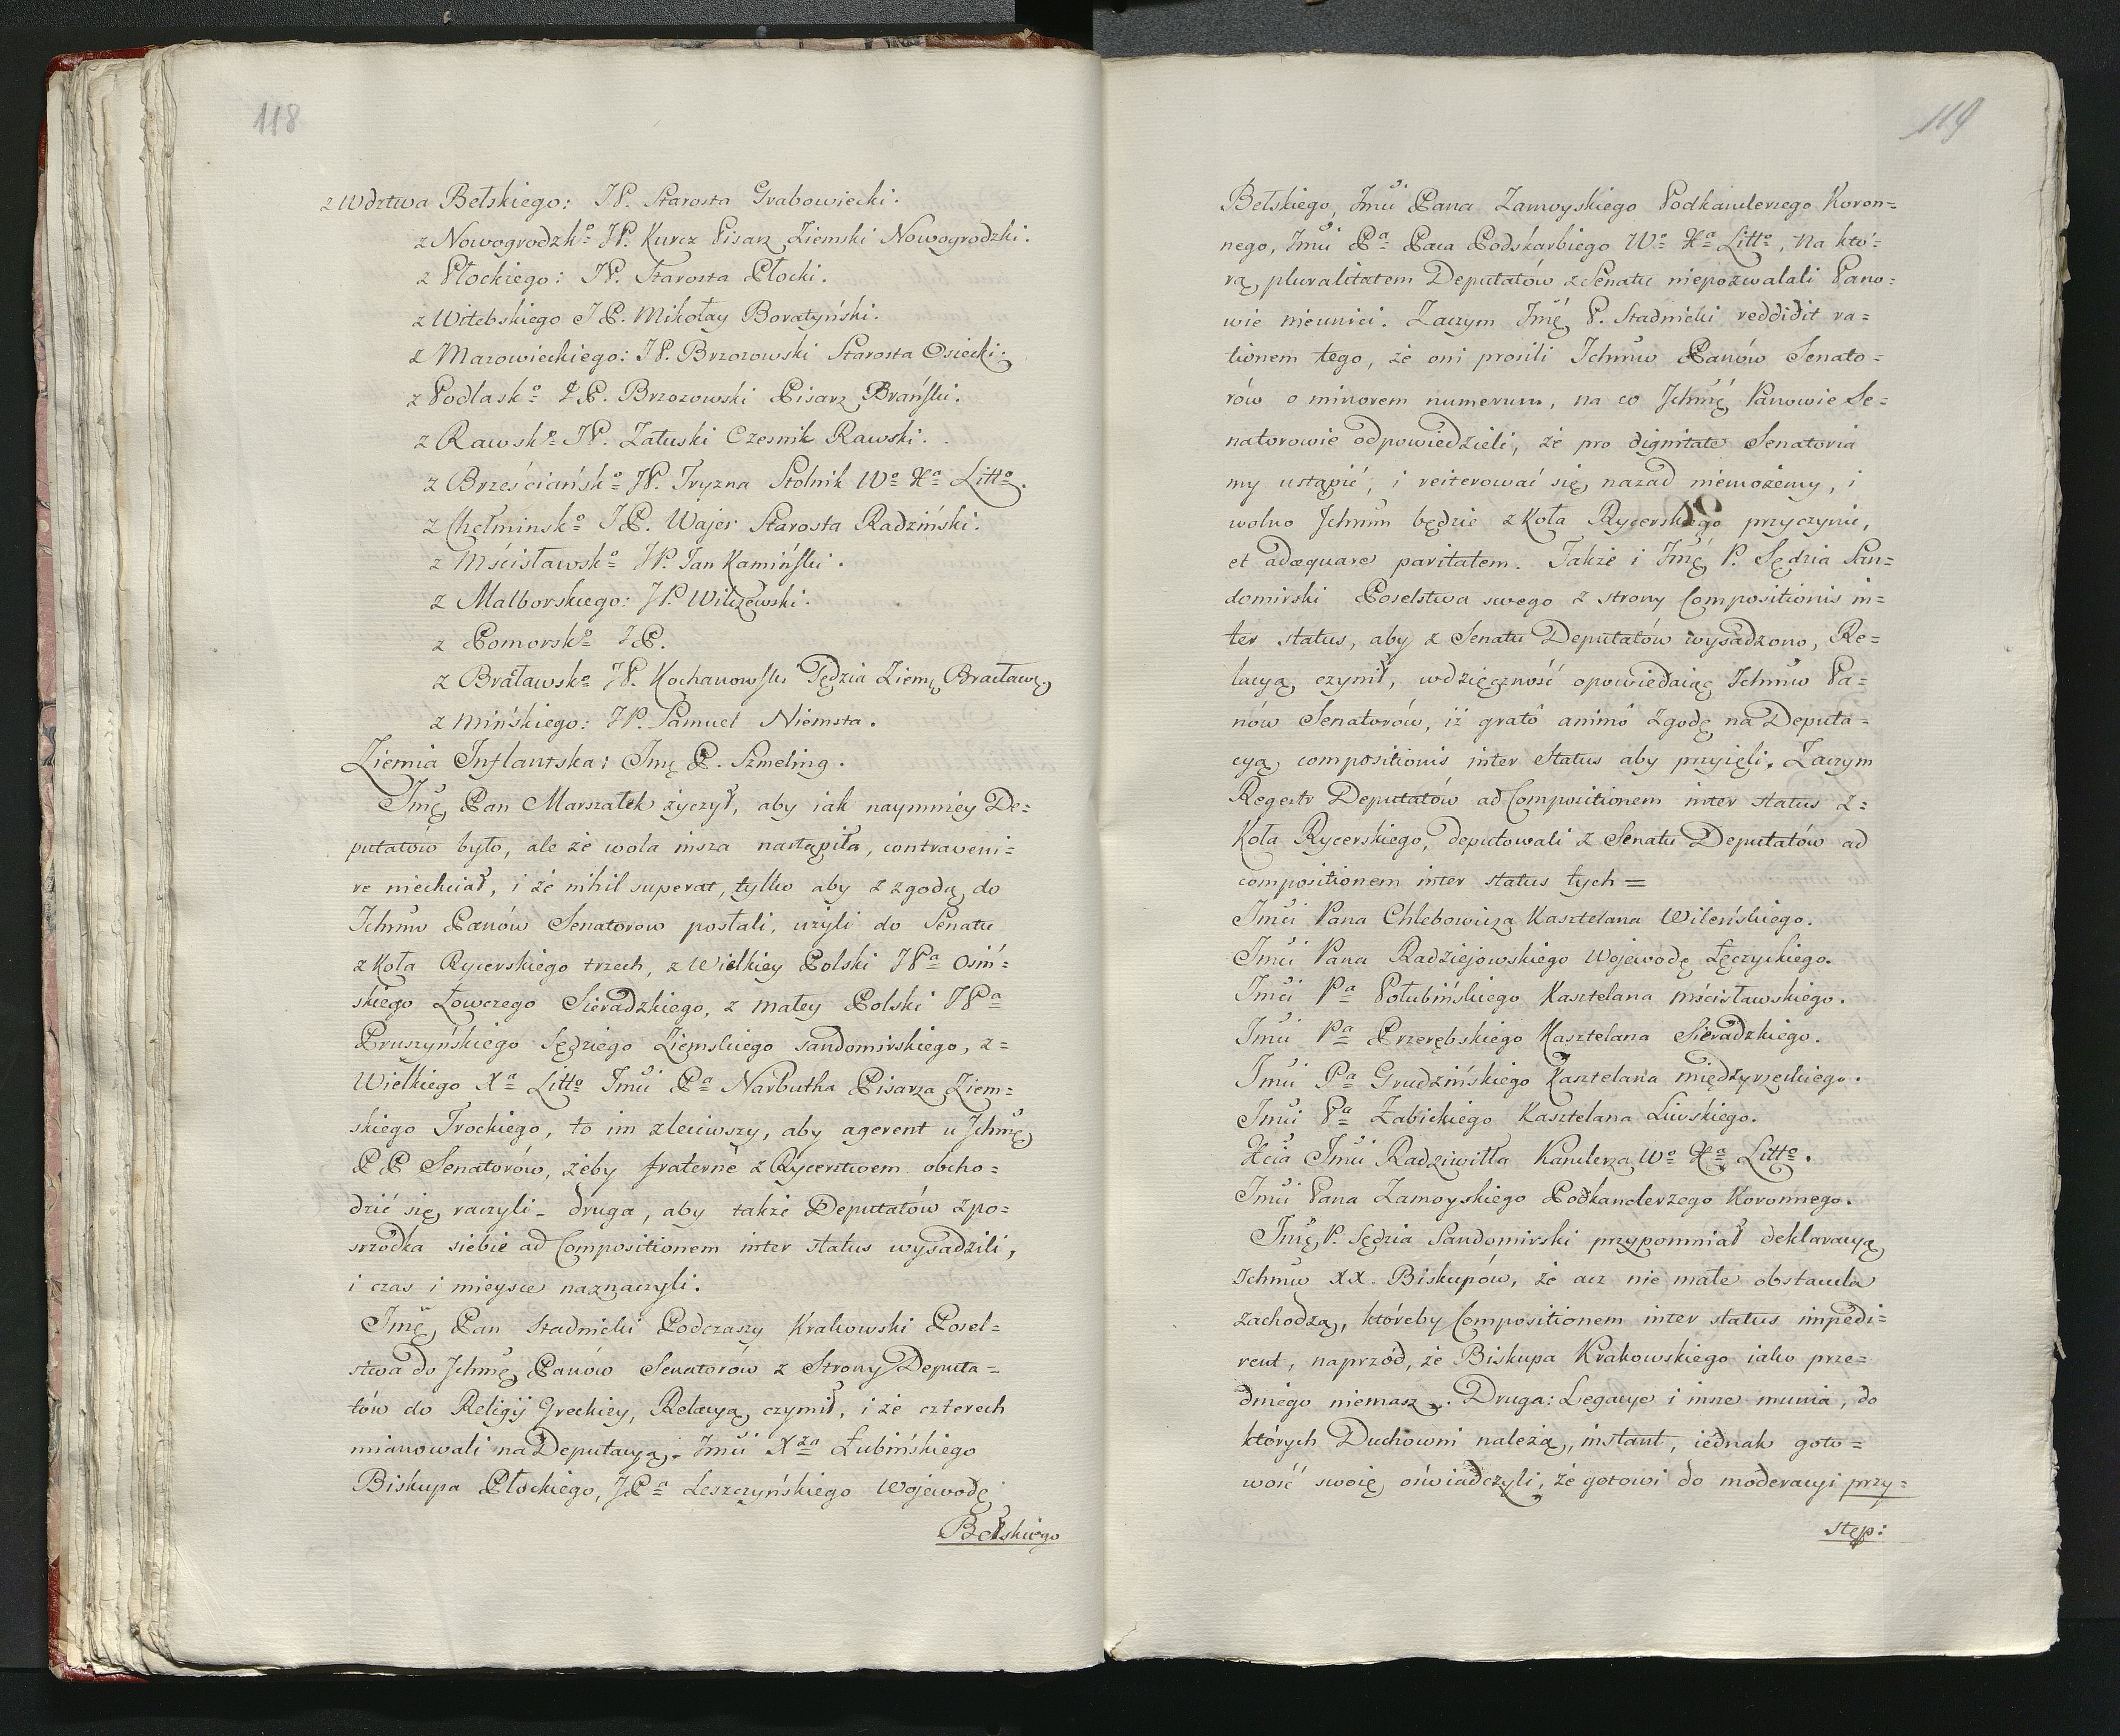 118
z Wdztwa Bełskiego: JP. Starosta Grabowiecki.
z Nowogrodzkº JP. Kurcz Pisarz Ziemski Nowogrodzki.
z Płockiego: JP. Starosta Płocki.
z Witebskiego JP. Mikołay Boratyński.
z Mazowieckiego: JP. Brzozowski Starosta Osiecki.
z Podlaskº JP. Brzozowski Pisarz Brański.
z Rawskº JP. Załuski Czesnik Rawski.
z Brześciańskº JP. Tryzna Stolnik Wº Xª Littº.
z Chełminskº JP. Wajer Starosta Radziński.
z Mścisławskº JP. Jan Kamiński.
z Malborskiego: JP. Wilczewski.
z Pomorskº JP.
z Bracławskº JP. Kochanowski Sędzia Ziemę Bracławę
z Mińskiego: JP. Samuel Niemsta.
Ziemia Inflantska: Jmę P. Szmeling.
Jmę Pan Marszałek życzył, aby iak naymniey De=
putatów było, ale że wola insza nastąpiła, contraveni=
re niechciał, i że nihil superat, tylko aby z zgodą do
Ichmw Panów Senatorow posłali, użyli do Senatu
z Koła Rycerskiego trzech, z Wielkiey Polski JPª Osiń=
skiego Łowczego Sieradzkiego, z małey Polski JPª
Pruszyńskiego Sędziego Ziemskiego Sandomirskiego, z=
Wielkiego Xª Littº Jmci Pª Narbutha Pisarza Ziem=
skiego Trockiego, to im zleciwszy, aby agerent u Ichmę
PP Senatorów, żeby fraternè z Rycerstwem obcho=
dzić się raczyli. druga, aby także Deputatów zpo=
srzodka siebie ad Compositionem inter status wysadzili,
i czas i mieysce naznaczyli.
Jmę Pan Stadnicki Podczaszy Krakowski Posel=
stwa do Ichmę Panów Senatorów z Strony Deputa=
tów do Religij Greckiey, Relacyą czynił, i że czterech
mianowali na Deputacyą. Jmci Xza Łubińskiego
Biskupa Płockiego, JPª Leszczyńskiego Wojewodę
Bełskiego
119
Bełskiego, Jmci Pana Zamoyskiego Podkanclerzego Koron=
nego, Jmci Pª Paca Podskarbiego Wº Xª Littº, na któ=
rą pluralitatem Deputatów z Senatu niepozwalali Pano=
wie nieunici. Zaczym Jmę P. Stadnicki reddidit ra=
tionem tego, że oni prosili Ichmw Panów Senato=
rów o minorem numerum, na co Ichmę Panowie Se=
natorowie odpowiedzieli, że pro dignitate Senatoria
my ustąpić, i reiterować się nazad niemożemy, i
wolno Ichmm będzie z Koła Rycerskiego przyczynic,
et adæquare paritatem. Także i Jmę P. Sędzia San=
domirski Poselstwa swego z strony Compositionis in=
ter status, aby z Senatu Deputatów wysadzono, Re=
lacyą czynił, wdzięczność opowiedaiąc Ichmw Pa=
nów Senatorów, iż gratô animô zgodę na Deputa=
cyą compositionis inter Status aby przyięli. Zaczym
Regestr Deputatów ad Compositionem inter status z=
Koła Rycerskiego, deputowali z Senatu Deputatów ad
compositionem inter status tych =
Jmci Pana Chlebowicza Kasztelana Wileńskiego.
Jmci Pana Radziejowskiego Wojewodę Łęczyckiego.
Jmci Pª Połubińskiego Kasztelana Mścisławskiego.
Jmci Pª Przerębskiego Kasztelana Sieradzkiego.
Jmci Pª Grudzińskiego Kasztelana międzyrzeckiego.
Jmci Pª Żabickiego Kasztelana Liwskiego.
Xcia Jmci Radziwiłła Kanclerza Wº Xª Littº.
Jmci Pana Zamoyskiego Podkanclerzego Koronnego.
Jmę P. Sędzia Sandomirski przypomniał deklaracyą
Ichmw XX. Biskupów, że acz nie małe obstacula
zachodzą, któreby Compositionem inter status impedi=
rent, naprzód, że Biskupa Krakowskiego iako prze=
dniego niemasz. Druga: Legacye i insze munia, do
których Duchowni należą, instant, iednak goto=
wość swoię oświadczyli, że gotowi do moderacyi przy=
stęp: